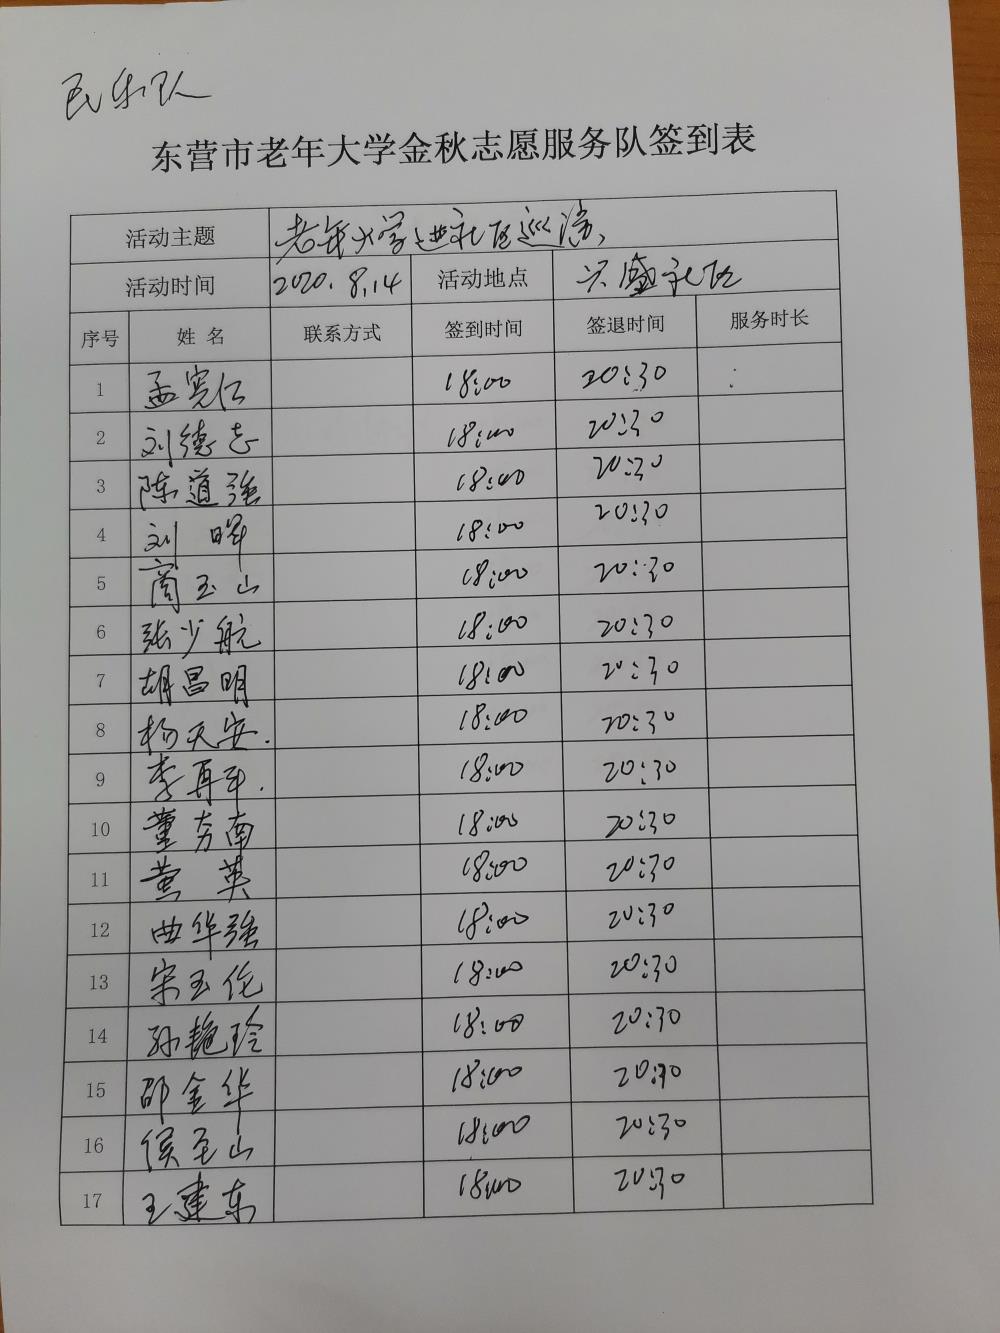 民乐队
东营市老年大学金秋志愿服务队签到表
活动主题 老年大学进社区巡演
活动时间 2020.8.14 活动地点 兴盛社区
序号 姓名 联系方式 签到时间 签退时间 服务时长
1 孟宪仁 18:00 20:30
2 刘德志 18:00 20:30
3 陈道强 18:00 20:30
4 刘晖 18:00 20:30
5 商玉山 18:00 20:30
6 张少航 18:00 20:30
7 胡昌明 18:00 20:30
8 杨天安. 18:00 20:30
9 李再平. 18:00 20:30
10 董南 18:00 20:30
11 黄英 18:00 20:30
12 曲华强 18:00 20:30
13 宋玉伦 18:00 20:30
14 孙艳玲 18:00 20:30
15 邵金华 18:00 20:30
16 侯玉山 18:00 20:30
17 王建东 18:00 20:30